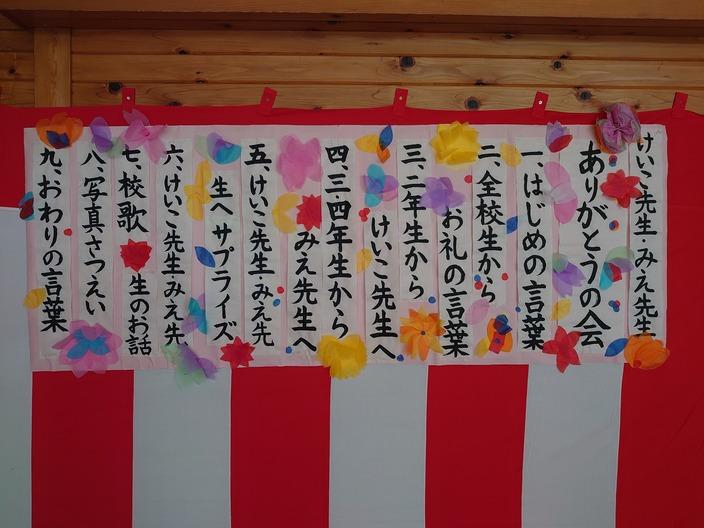 けいこ先生・みえ先生
ありがとうの会
一、はじめの言葉
二、全校生から
お礼の言葉
三、二年生から
けいこ先生へ
四、三四年生から
みえ先生へ
五、けいこ先生・みえ先
生へサプライズ
六、けいこ先生・みえ先
生のお話
七、校歌
八、写真さつえい
九、おわりの言葉